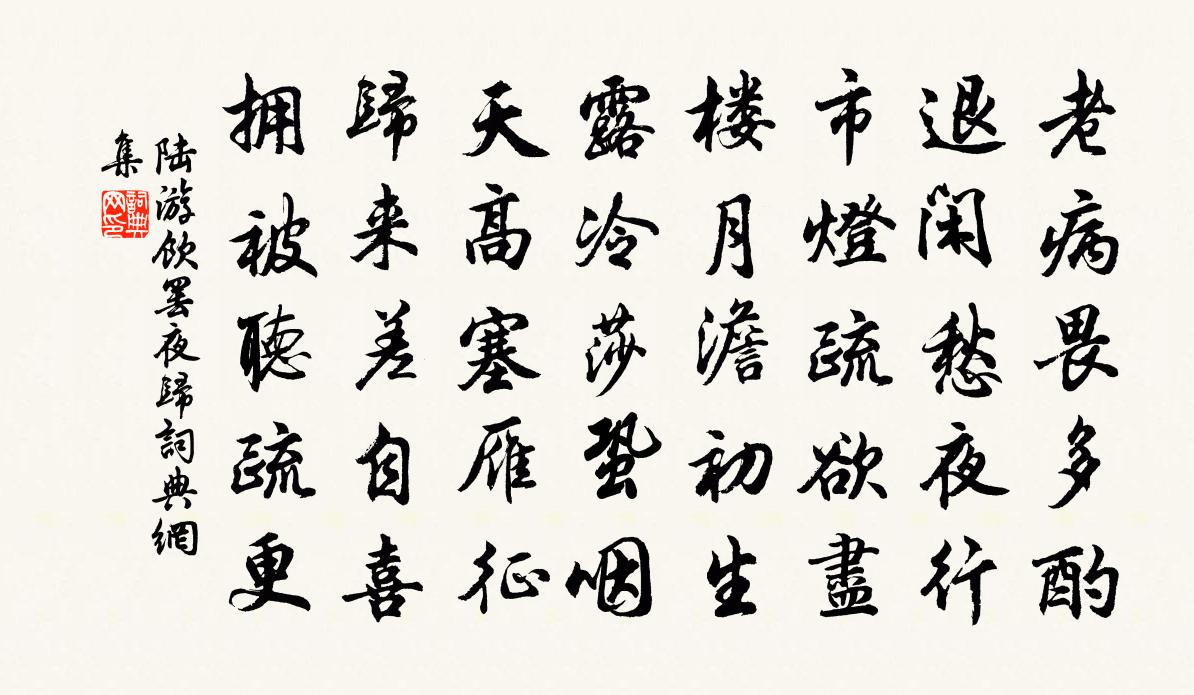 老病畏多酌
退閑愁夜行
市燈疏欲盡
楼月澹初生
露冷莎蛩咽
天高塞雁征
歸来差自喜
拥被聽疏更
陆游飲罢夜歸詞典網
集
詞典网印